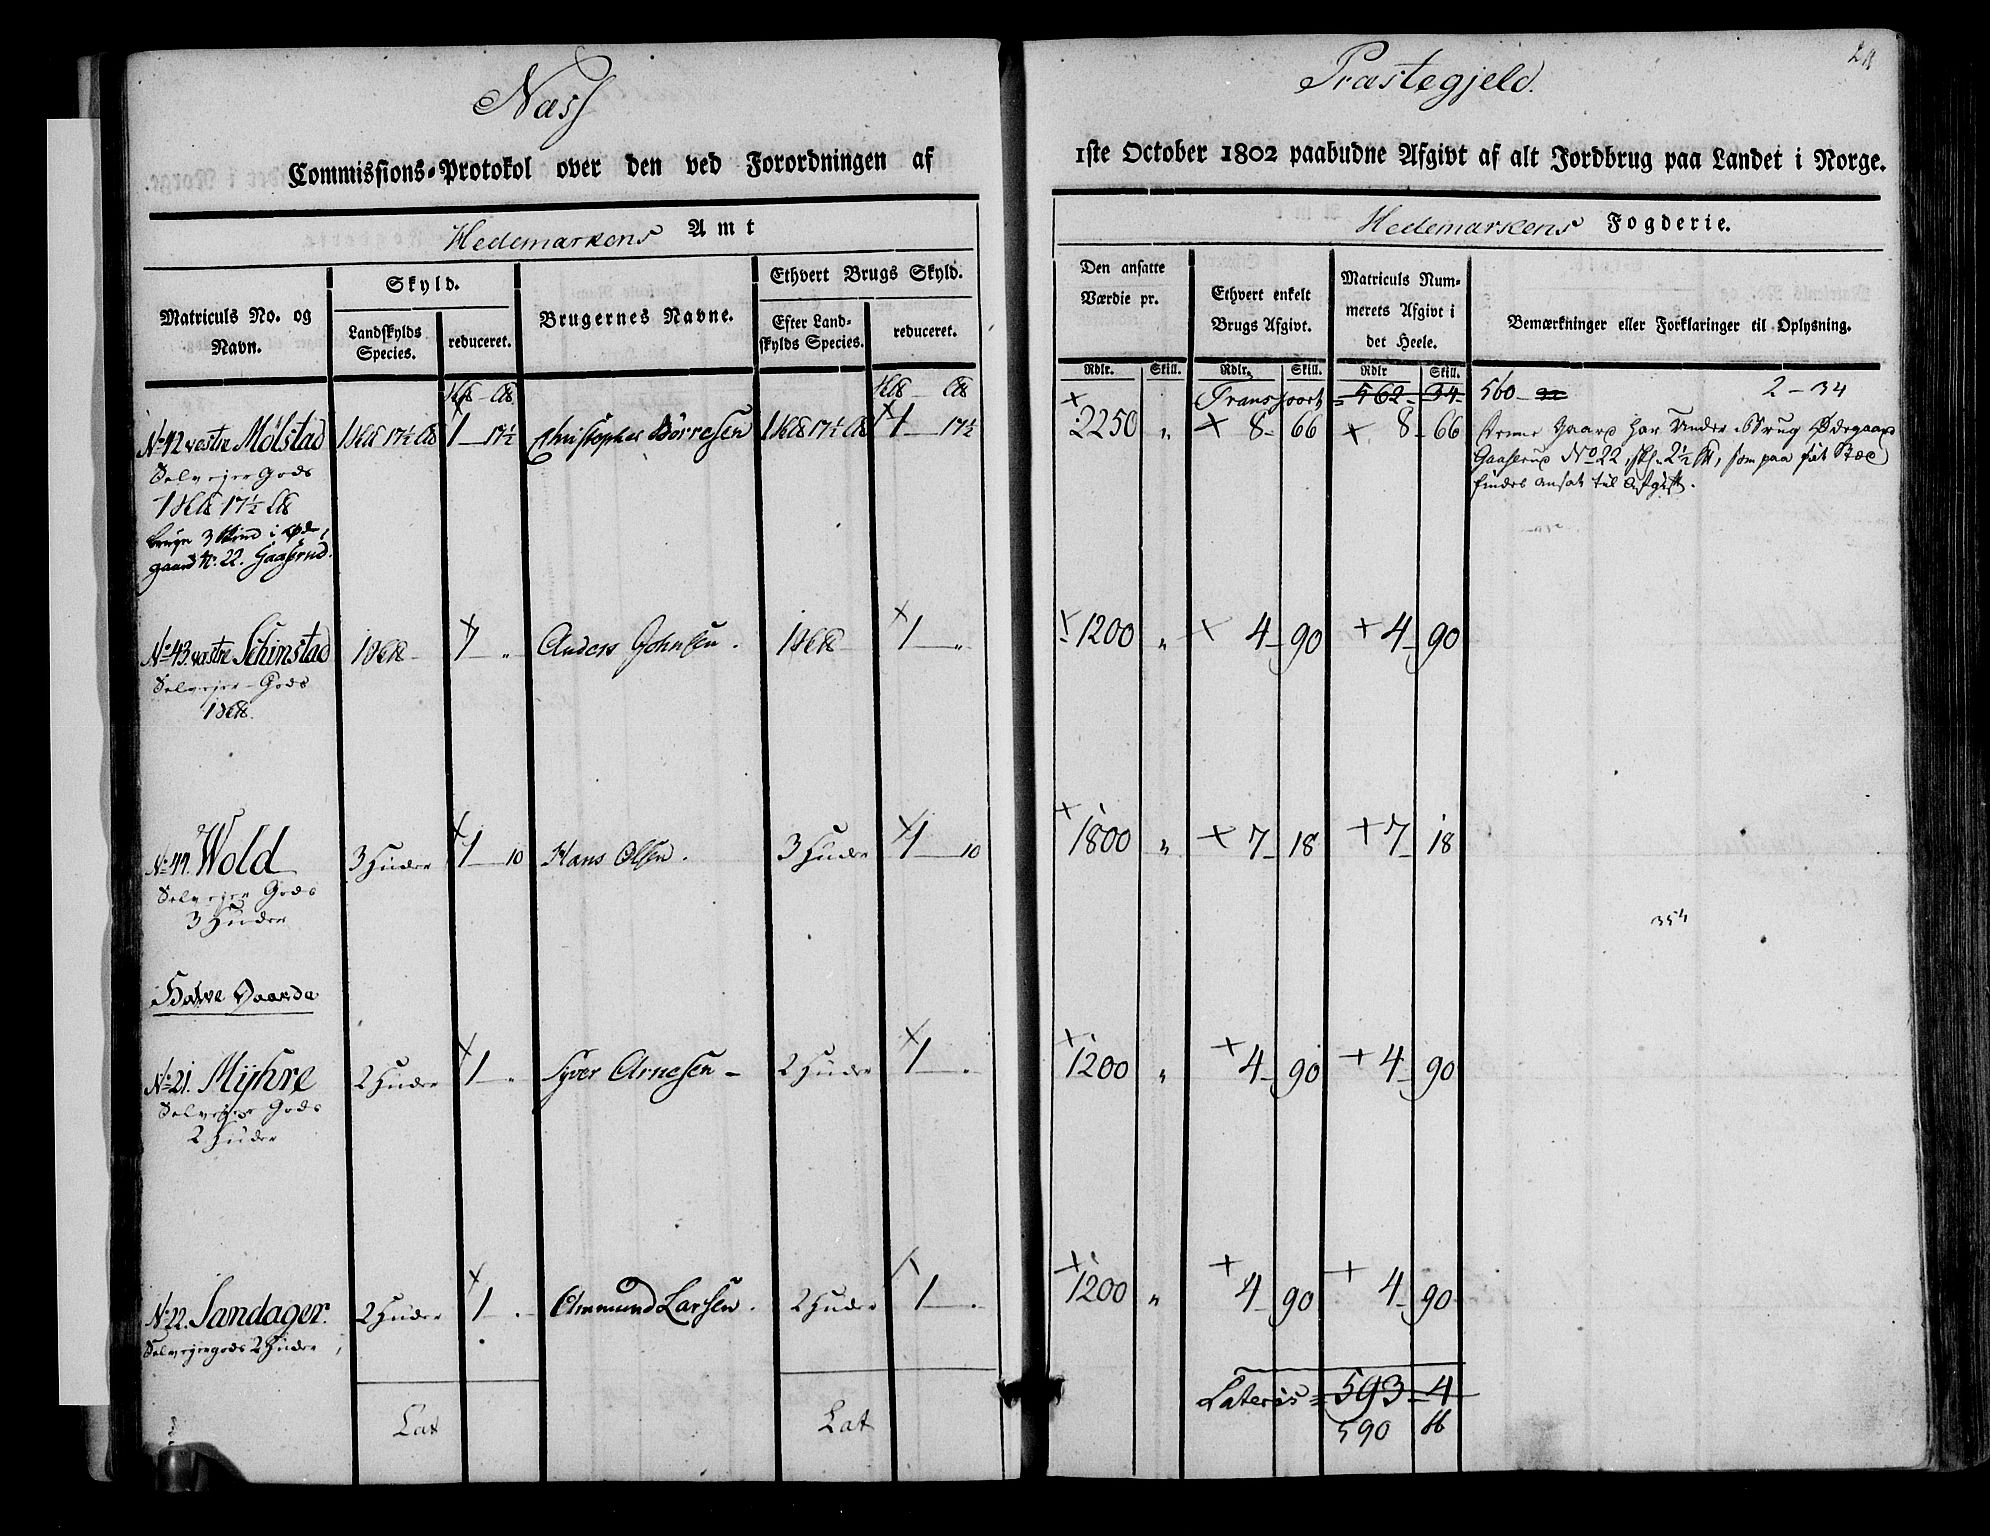 Næss
Præstegjeld.
Commissions-Protokol over den ved Forordningen af
1ste October 1802 paabudne Afgivt af alt Jordbrug paa Landet i Norge.
Hedemarkens Amt
Hedemarkens Fogderie.
Matriculs No. og Navn.
Skyld.
Landskylds Species.
reduceret.
Brugernes Navne.
Ethvert Brugs Skyld.
Efter Landskylds Species.
reduceret.
Den ansatte Værdie pr.
Ethvert enkelt Brugs Afgivt.
Matriculs Nummerets Afgivt i det Heele.
Bemærkninger eller Forklaringer til Oplysning.
Rdlr. Skill. Rdlr. Skill. Rdlr Skill.
Transport 562 - 34 560 - 2 - 34
No 42 vestre Mølstad 1 17½ 1 - 17½ Christopher Börresen 1 17½ 1 - 17½ 2250 „ 8 - 66 8 - 66 Denne Gaard har Under-Brug Ødegaard
Selvejer Gods
Gaaserud No 22, 2½, som paa sit Sted
1 17½
findes ansat til Afgivt.
bruger 3 i Øde-
gaard N. 22. Gaaserud.
No 43. vestre Schinstad 1 1 - „ Anders Johnsen. 1 1 - „ 1200 „ 4 - 90 4 - 90
Selvejer-Gods
1
No 44. Wold 3 Huder 1 - 10 Hans Olsen. 3 Huder 1 - 10 1800 „ 7 - 18 7 - 18
Selvejer Gods
3 Huder
354
Halve Gaarde
No 21. Myhre 2 Huder 1 - „ Syver Arnesen - 2 Huder 1 - „ 1200 „ 4 - 90 4 - 90
Selvejer Gods
2 Huder
No 22. Sandager. 2 Huder 1 - „ Ammund Larsen. 2 Huder 1 - „ 1200 „ 4 - 90 4 - 90
Selvejergods 2 Huder
Lateris = 593 - 4
Lat Lat 590 66